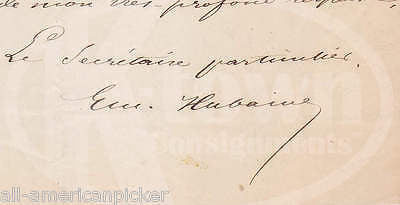 de mon très-profond respect,
Le Secrétaire particulier,
Em. Hubaine
Consignments
all-americanpicker